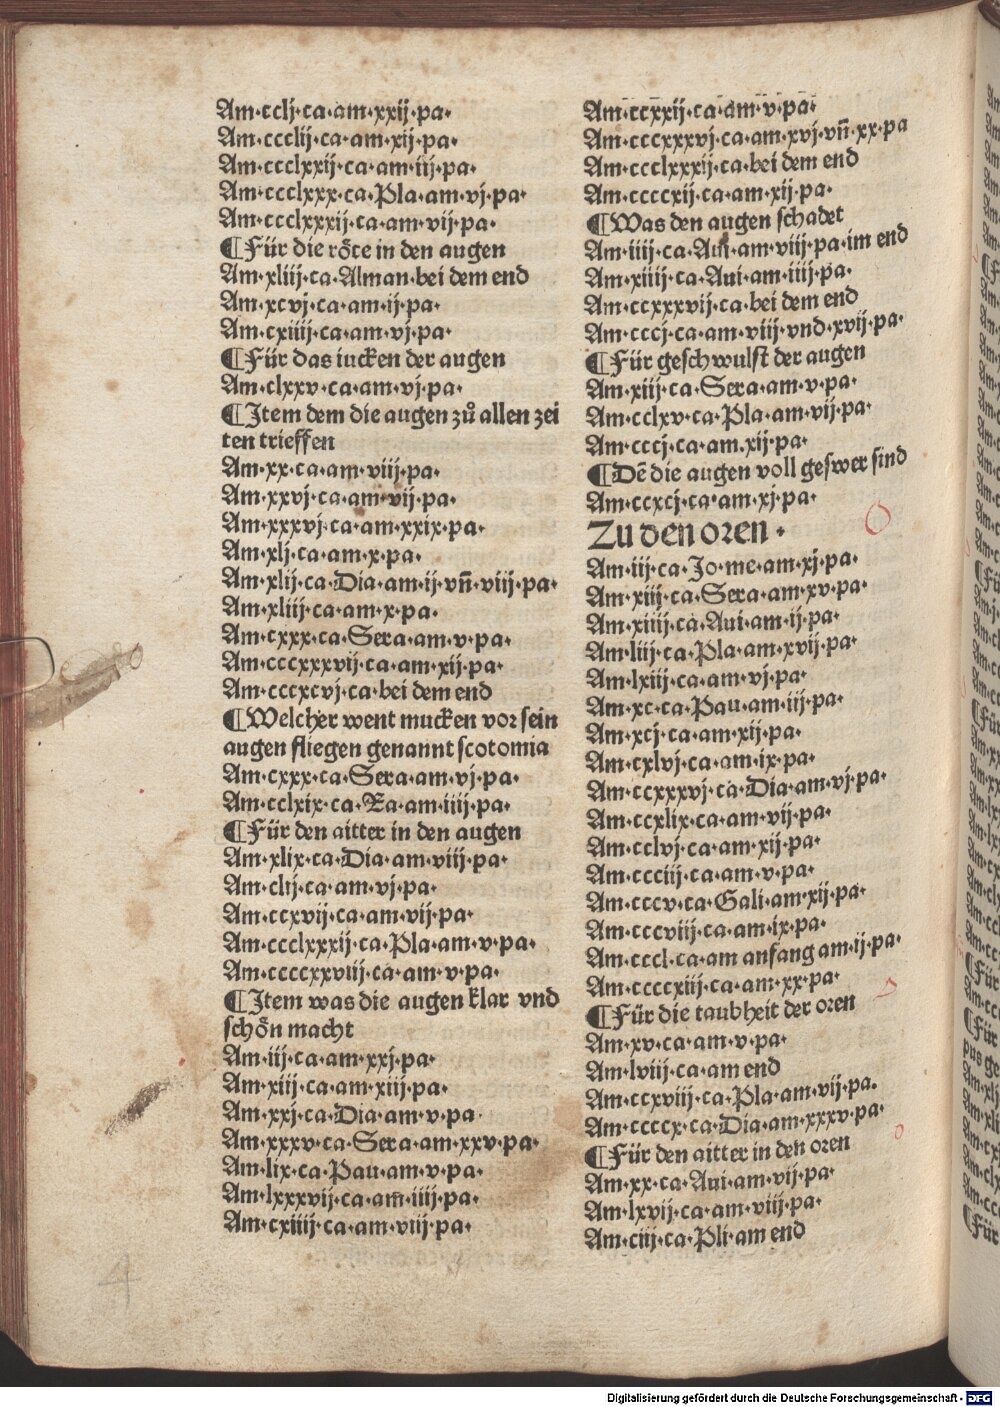 Am·cclj·ca·am·xxij·pa·
Am·ccclij·ca·am·xij·pa·
Am·ccclxxij·ca·am·iij·pa·
Am·ccclxxx·ca·Pla·am·vj·pa·
Am·ccclxxxij·ca·am·vij·pa·
¶Für die röte in den augen
Am·xliij·ca·Alman·bei dem end
Am·xcvj·ca·am·ij·pa·
Am·cxiiij·ca·am·vj·pa·
¶Für das iucken der augen
Am·clxxv·ca·am·vj·pa·
¶Item dem die augen zů allen zei
ten trieffen
Am·xx·ca·am·viij·pa·
Am·xxvj·ca·am·vij·pa·
Am·xxxvj·ca·am·xxix·pa·
Am·xlj·ca·am·x·pa·
Am·xlij·ca·Dia·am·ij·vñ·viij·pa·
Am·xliij·ca·am·x·pa·
Am·cxxx·ca·Sera·am·v·pa·
Am·cccxxxvij·ca·am·xij·pa·
Am·cccxcvj·ca·bei dem end
¶Welcher went mucken vor sein
augen fliegen genannt scotomia
Am·cxxx·ca·Sera·am·vj·pa·
Am·cclxix·ca·Ra·am·iiij·pa·
¶Für den aitter in den augen
Am·xlix·ca·Dia·am·viij·pa·
Am·clij·ca·am·vj·pa·
Am·ccxvij·ca·am·vij·pa·
Am·ccclxxxij·ca·Pla·am·v·pa·
Am·ccccxxviij·ca·am·v·pa·
¶Item was die augen klar vnd
schön macht
Am·iij·ca·am·xxj·pa·
Am·xiij·ca·am·xiij·pa·
Am·xxj·ca·Dia·am·v·pa·
Am·xxxv·ca·Sera·am·xxv·pa·
Am·lix·ca·Pau·am·v·pa·
Am·lxxxvij·ca·am·iiij·pa·
Am·cxiiij·ca·am·viij·pa·
Am·ccxxij·ca·am·v·pa·
Am·cccxxxvj·ca·am·xvj·vñ·xx·pa
Am·ccclxxxij·ca·bei dem end
Am·ccccxij·ca·am·xij·pa·
¶Was den augen schadet
Am·iiij·ca·Aui·am·viij·pa·im end
Am·xiiij·ca·Aui·am·iiij·pa·
Am·ccxxxvij·ca·bei dem end
Am·cccj·ca·am·viij·vnd·xvij·pa·
¶Für geschwulst der augen
Am·xiij·ca·Sera·am·v·pa·
Am·cclxv·ca·Pla·am·vij·pa·
Am·cccj·ca·am·xij·pa·
¶Dē die augen voll geswer sind
Am·ccxcj·ca·am·xj·pa·
Zu den oren·
Am·iij·ca·Jo·me·am·xj·pa·
Am·xiij·ca·Sera·am·xv·pa·
Am·xiiij·ca·Aui·am·ij·pa·
Am·liij·ca·Pla·am·xvij·pa·
Am·lxiij·ca·am·vj·pa·
Am·xc·ca·Pau·am·iij·pa·
Am·xcj·ca·am·xij·pa·
Am·cxlvj·ca·am·ix·pa·
Am·ccxxxvj·ca·Dia·am·vj·pa·
Am·ccxlix·ca·am·vij·pa·
Am·cclvj·ca·am·xij·pa·
Am·ccciij·ca·am·v·pa·
Am·cccv·ca·Gali·am·xij·pa·
Am·cccviij·ca·am·ix·pa·
Am·cccl·ca·am anfang am·ij·pa·
Am·ccccxiij·ca·am·xx·pa·
¶Für die taubheit der oren
Am·xv·ca·am·v·pa·
Am·lviij·ca·am end
Am·ccxviij·ca·Pla·am·vij·pa·
Am·ccccx·ca·Dia·am·xxxv·pa·
¶Für den aitter in den oren
Am·xx·ca·Aui·am·vij·pa·
Am·lxvij·ca·am·viij·pa·
Am·ciij·ca·Pli·am end
4
Digitalisierung gefördert durch die Deutsche Forschungsgemeinschaft - DFG